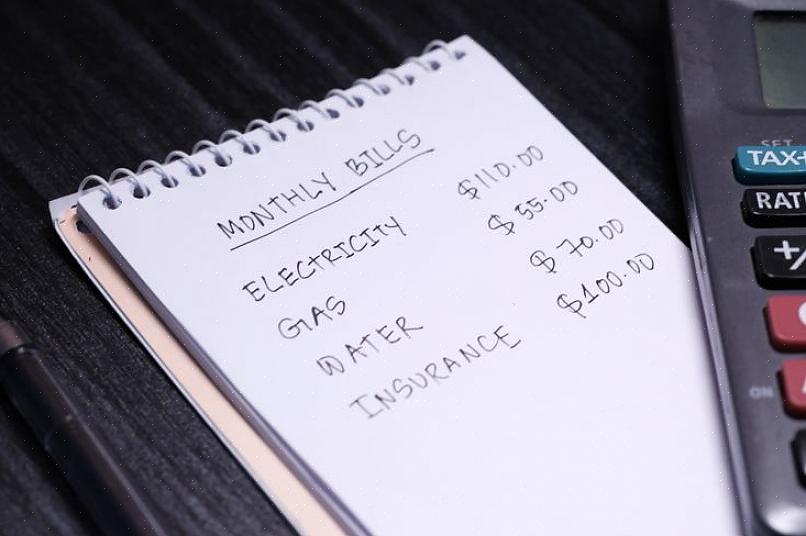 MONTHLY BILLS
ELECTRICITY $110.00
GAS $55.00
WATER $70.00
INSURANCE $100.00
SET
TAX+
+/
ON